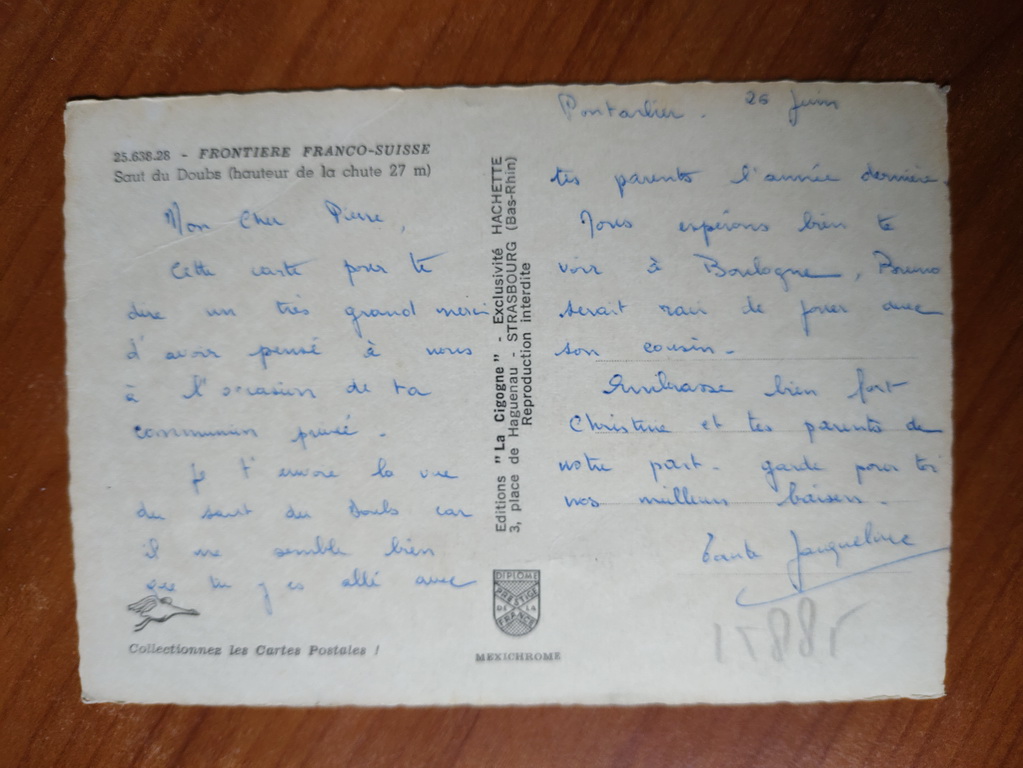 25.638.28 - FRONTIERE FRANCO-SUISSE
Saut du Doubs (hauteur de la chute 27 m)
Mon cher Pierre,
Cette carte pour te
dire un très grand merci
d'avoir pensé à nous
à l'occasion de ta
communion privée.
Je t'envoie la vue
du saut du Doubs car
il me semble bien
que tu y es allé avec
Collectionnez les Cartes Postales !
Editions "La Cigogne" - Exclusivité HACHETTE
3, place de Haguenau - STRASBOURG (Bas-Rhin)
Reproduction interdite
DIPLOME
PRESTIGE
DE LA
FRANCE
MEXICHROME
Pontarlier. 26 Juin
tes parents l'année dernière
Nous espérons bien te
voir à Boulogne, Bruno
serait ravi de jouer avec
son cousin.
Embrasse bien fort
Christine et tes parents de
notre part. garde pour toi
nos meilleurs baisers.
Tante Jacqueline